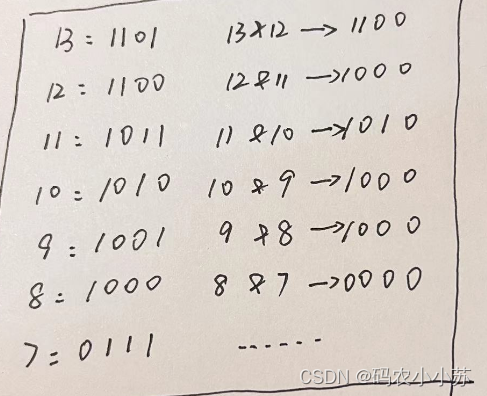 13 = 1101 13&12 → 1100
12 = 1100 12&11 → 1000
11 = 1011 11&10 → 1010
10 = 1010 10&9 → 1000
9 = 1001 9&8 → 1000
8 = 1000 8&7 → 0000
7 = 0111 ------
CSDN @码农小小苏